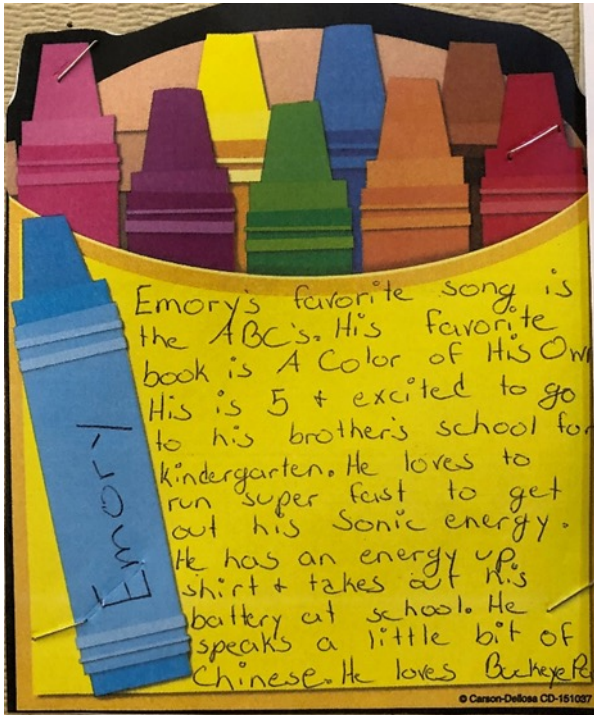 Emory's favorite song is
the ABC's. His favorite
book is A Color of His Own
His is 5 & excited to go
to his brother's school for
kindergarten. He loves to
run super fast to get
out his Sonic energy.
He has an energy up
shirt & takes out his
battery at school. He
speaks a little bit of
Chinese. He loves Buckeye
Emory
© Carson-Dellosa CD-151037